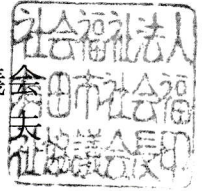 社会福祉法人
田市社会福
祉協議会長印
会
夫